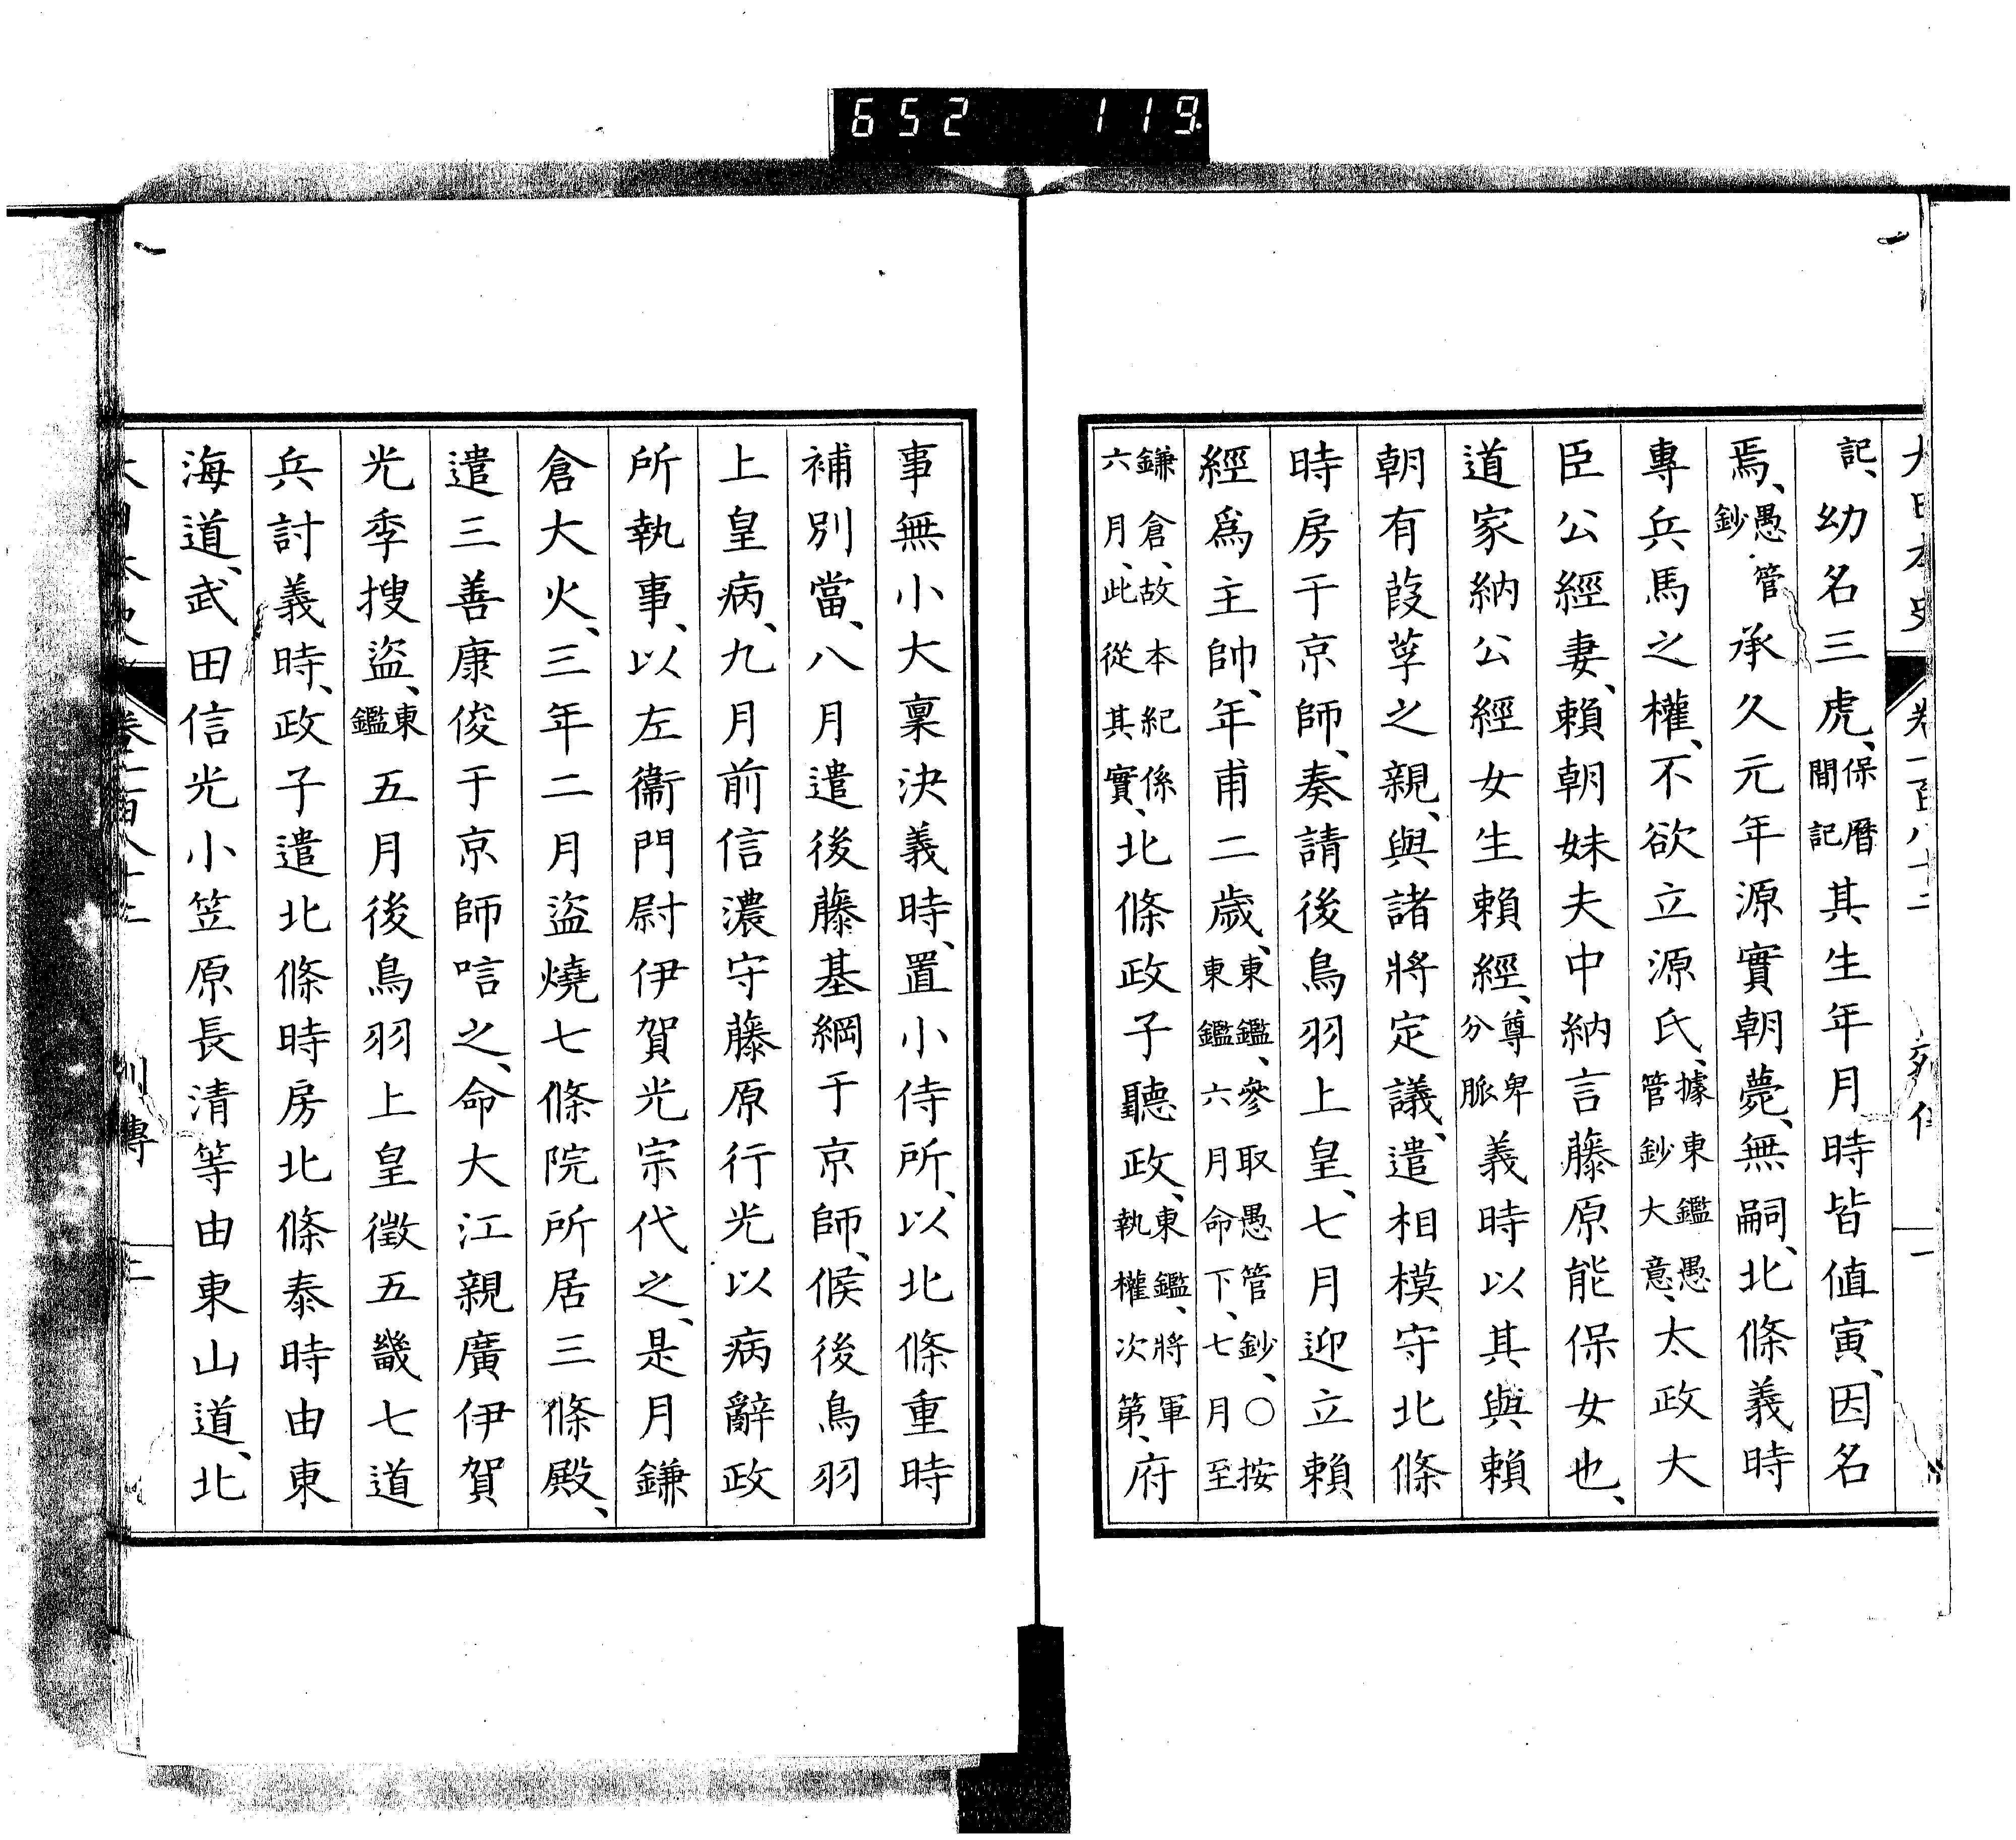 652 119
記、幼名三虎、保暦間記其生年月時皆値寅、因名
焉、愚管鈔承久元年源實朝薨、無嗣、北條義時
專兵馬之權、不欲立源氏、據東鑑愚管鈔大意、太政大
臣公經妻、賴朝妹夫中納言藤原能保女也、
道家納公經女生賴經、尊卑分脈義時以其與賴
朝有葭莩之親、與諸將定議、遣相模守北條
時房于京師、奏請後鳥羽上皇、七月迎立賴
經爲主帥、年甫二歲、東鑑、參取愚管鈔、○按東鑑六月命下、七月至
鎌倉、故本紀係六月、此從其實、北條政子聽政、東鑑、將軍執權次第、府
事無小大稟決義時、置小侍所、以北條重時
補別當、八月遣後藤基綱于京師、候後鳥羽
上皇病、九月前信濃守藤原行光以病辭政
所執事、以左衞門尉伊賀光宗代之、是月鎌
倉大火、三年二月盜燒七條院所居三條殿、
遣三善康俊于京師唁之、命大江親廣伊賀
光季搜盜、東鑑五月後鳥羽上皇徵五畿七道
兵討義時、政子遣北條時房北條泰時由東
海道、武田信光小笠原長清等由東山道、北